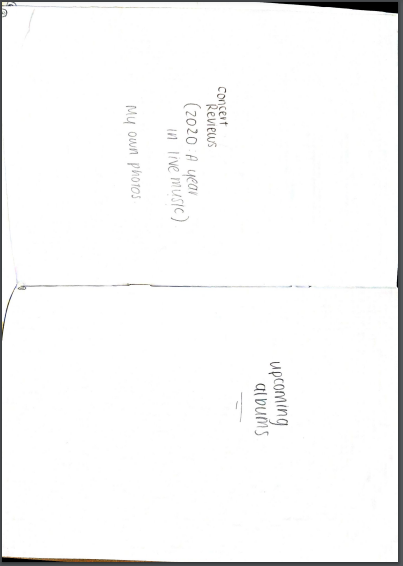 concert
Reviews
(2020: A year
in live music)
My own photos
upcoming
albums